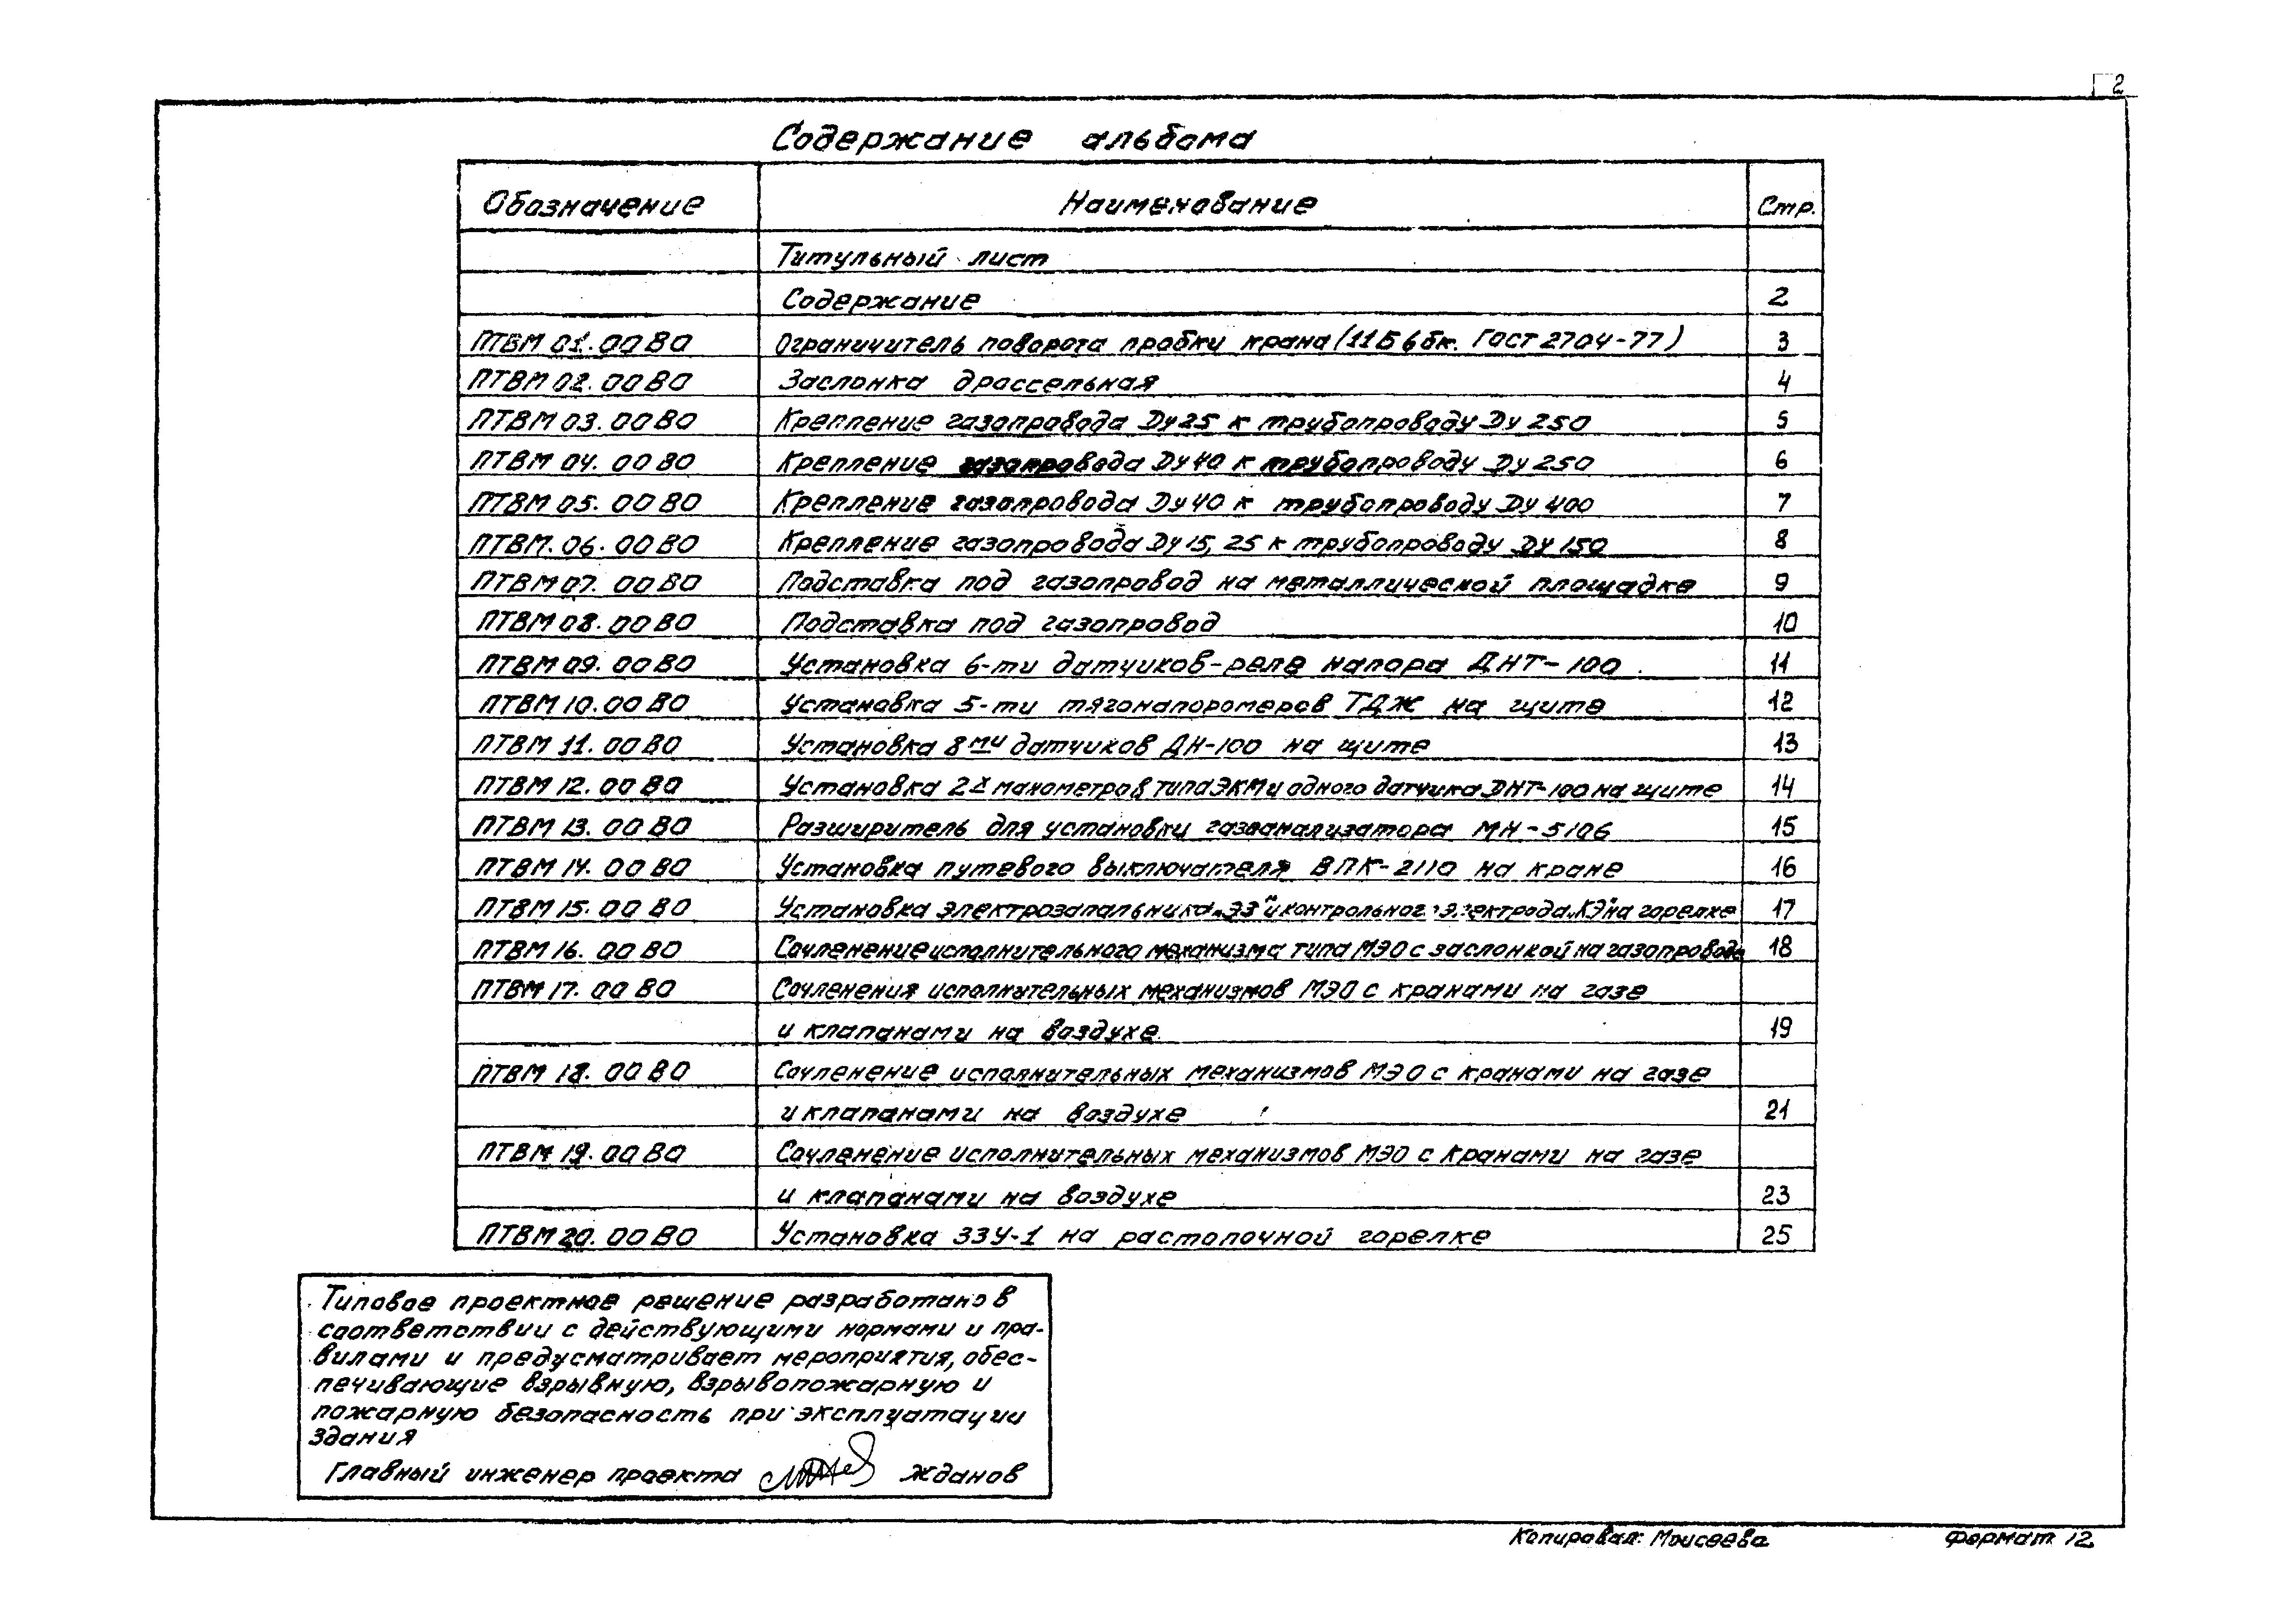 2
Содержание альбома
Обозначение Наименование Стр.
Титульный лист
Содержание 2
ПТВМ 01.00 ВО Ограничитель поворота пробки крана (11Б6бк. ГОСТ 2704-77) 3
ПТВМ 02.00 ВО Заслонка дроссельная 4
ПТВМ 03.00 ВО Крепление газопровода Ду 25 к трубопроводу Ду 250 5
ПТВМ 04.00 ВО Крепление газопровода Ду 40 к трубопроводу Ду 250 6
ПТВМ 05.00 ВО Крепление газопровода Ду 40 к трубопроводу Ду 400 7
ПТВМ.06.00 ВО Крепление газопровода Ду 15, 25 к трубопроводу Ду 150 8
ПТВМ 07.00 ВО Подставка под газопровод на металлической площадке 9
ПТВМ 08.00 ВО Подставка под газопровод 10
ПТВМ 09.00 ВО Установка 6-ти датчиков-реле напора ДНТ-100 11
ПТВМ 10.00 ВО Установка 5-ти тягонапоромеров ТДЖ на щите 12
ПТВМ 11.00 ВО Установка 8ми датчиков ДН-100 на щите 13
ПТВМ 12.00 ВО Установка 2х манометров типа ЭКМ и одного датчика ДНТ-100 на щите 14
ПТВМ 13.00 ВО Расширитель для установки газоанализатора МН-5106 15
ПТВМ 14.00 ВО Установка путевого выключателя ВПК-2110 на кране 16
ПТВМ 15.00 ВО Установка электрозапальника „ЭЗ" и контрольного электрода „КЭ" на горелке 17
ПТВМ 16.00 ВО Сочленение исполнительного механизма типа МЭО с заслонкой на газопроводе 18
ПТВМ 17.00 ВО Сочленения исполнительных механизмов МЭО с кранами на газе
и клапанами на воздухе 19
ПТВМ 18.00 ВО Сочленение исполнительных механизмов МЭО с кранами на газе
и клапанами на воздухе 21
ПТВМ 19.00 ВО Сочленение исполнительных механизмов МЭО с кранами на газе
и клапанами на воздухе 23
ПТВМ 20.00 ВО Установка ЗЗУ-1 на растопочной горелке 25
Типовое проектное решение разработано в
соответствии с действующими нормами и пра-
вилами и предусматривает мероприятия, обес-
печивающие взрывную, взрывопожарную и
пожарную безопасность при эксплуатации
здания
Главный инженер проекта Жданов
Копировал: Моисеева Формат 12